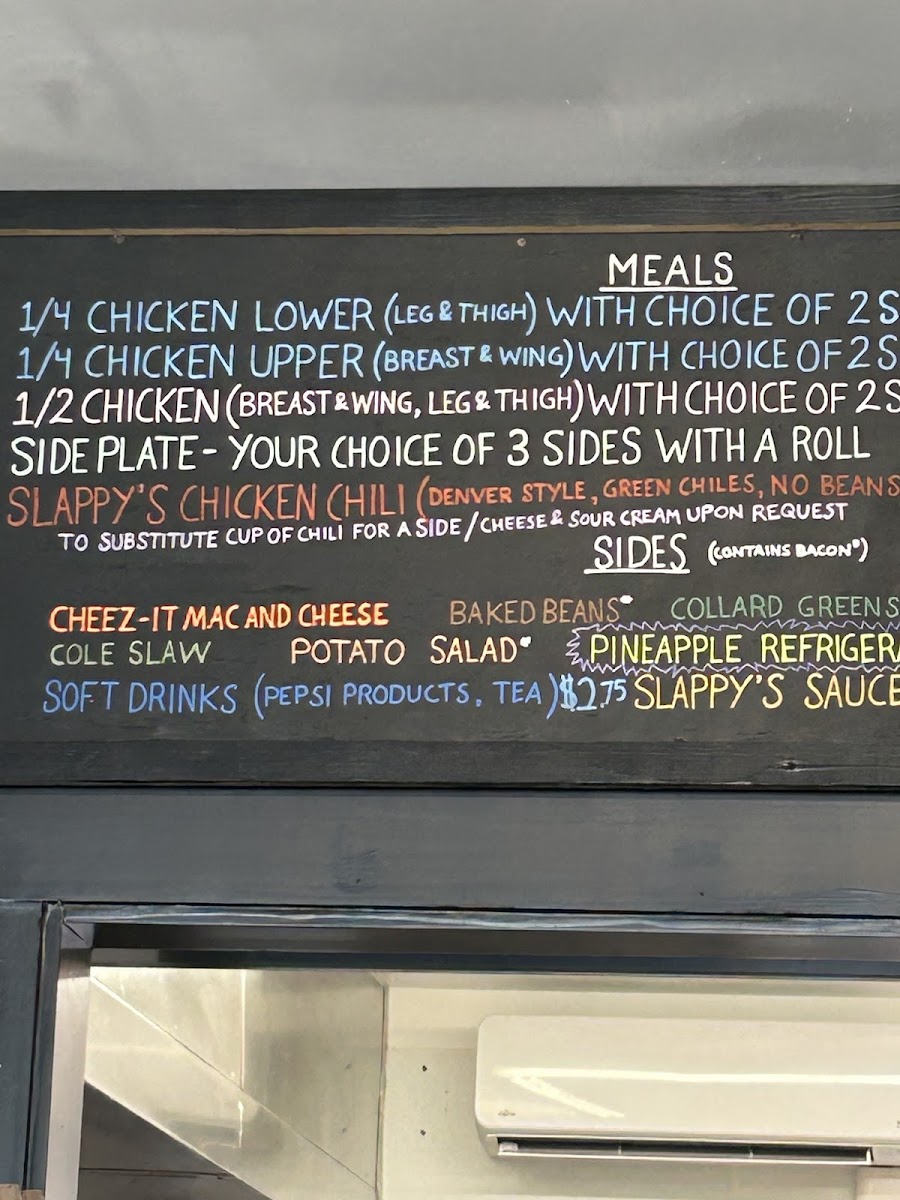 MEALS
1/4 CHICKEN LOWER (LEG & THIGH) WITH CHOICE OF 2 S
1/4 CHICKEN UPPER (BREAST & WING) WITH CHOICE OF 2 S
1/2 CHICKEN (BREAST & WING, LEG & THIGH) WITH CHOICE OF 2 S
SIDE PLATE - YOUR CHOICE OF 3 SIDES WITH A ROLL
SLAPPY'S CHICKEN CHILI (DENVER STYLE, GREEN CHILES, NO BEANS
TO SUBSTITUTE CUP OF CHILI FOR A SIDE / CHEESE & SOUR CREAM UPON REQUEST
SIDES (CONTAINS BACON*)
CHEEZ-IT MAC AND CHEESE BAKED BEANS* COLLARD GREENS
COLE SLAW POTATO SALAD* PINEAPPLE REFRIGERA
SOFT DRINKS (PEPSI PRODUCTS, TEA) $2.75 SLAPPY'S SAUCE